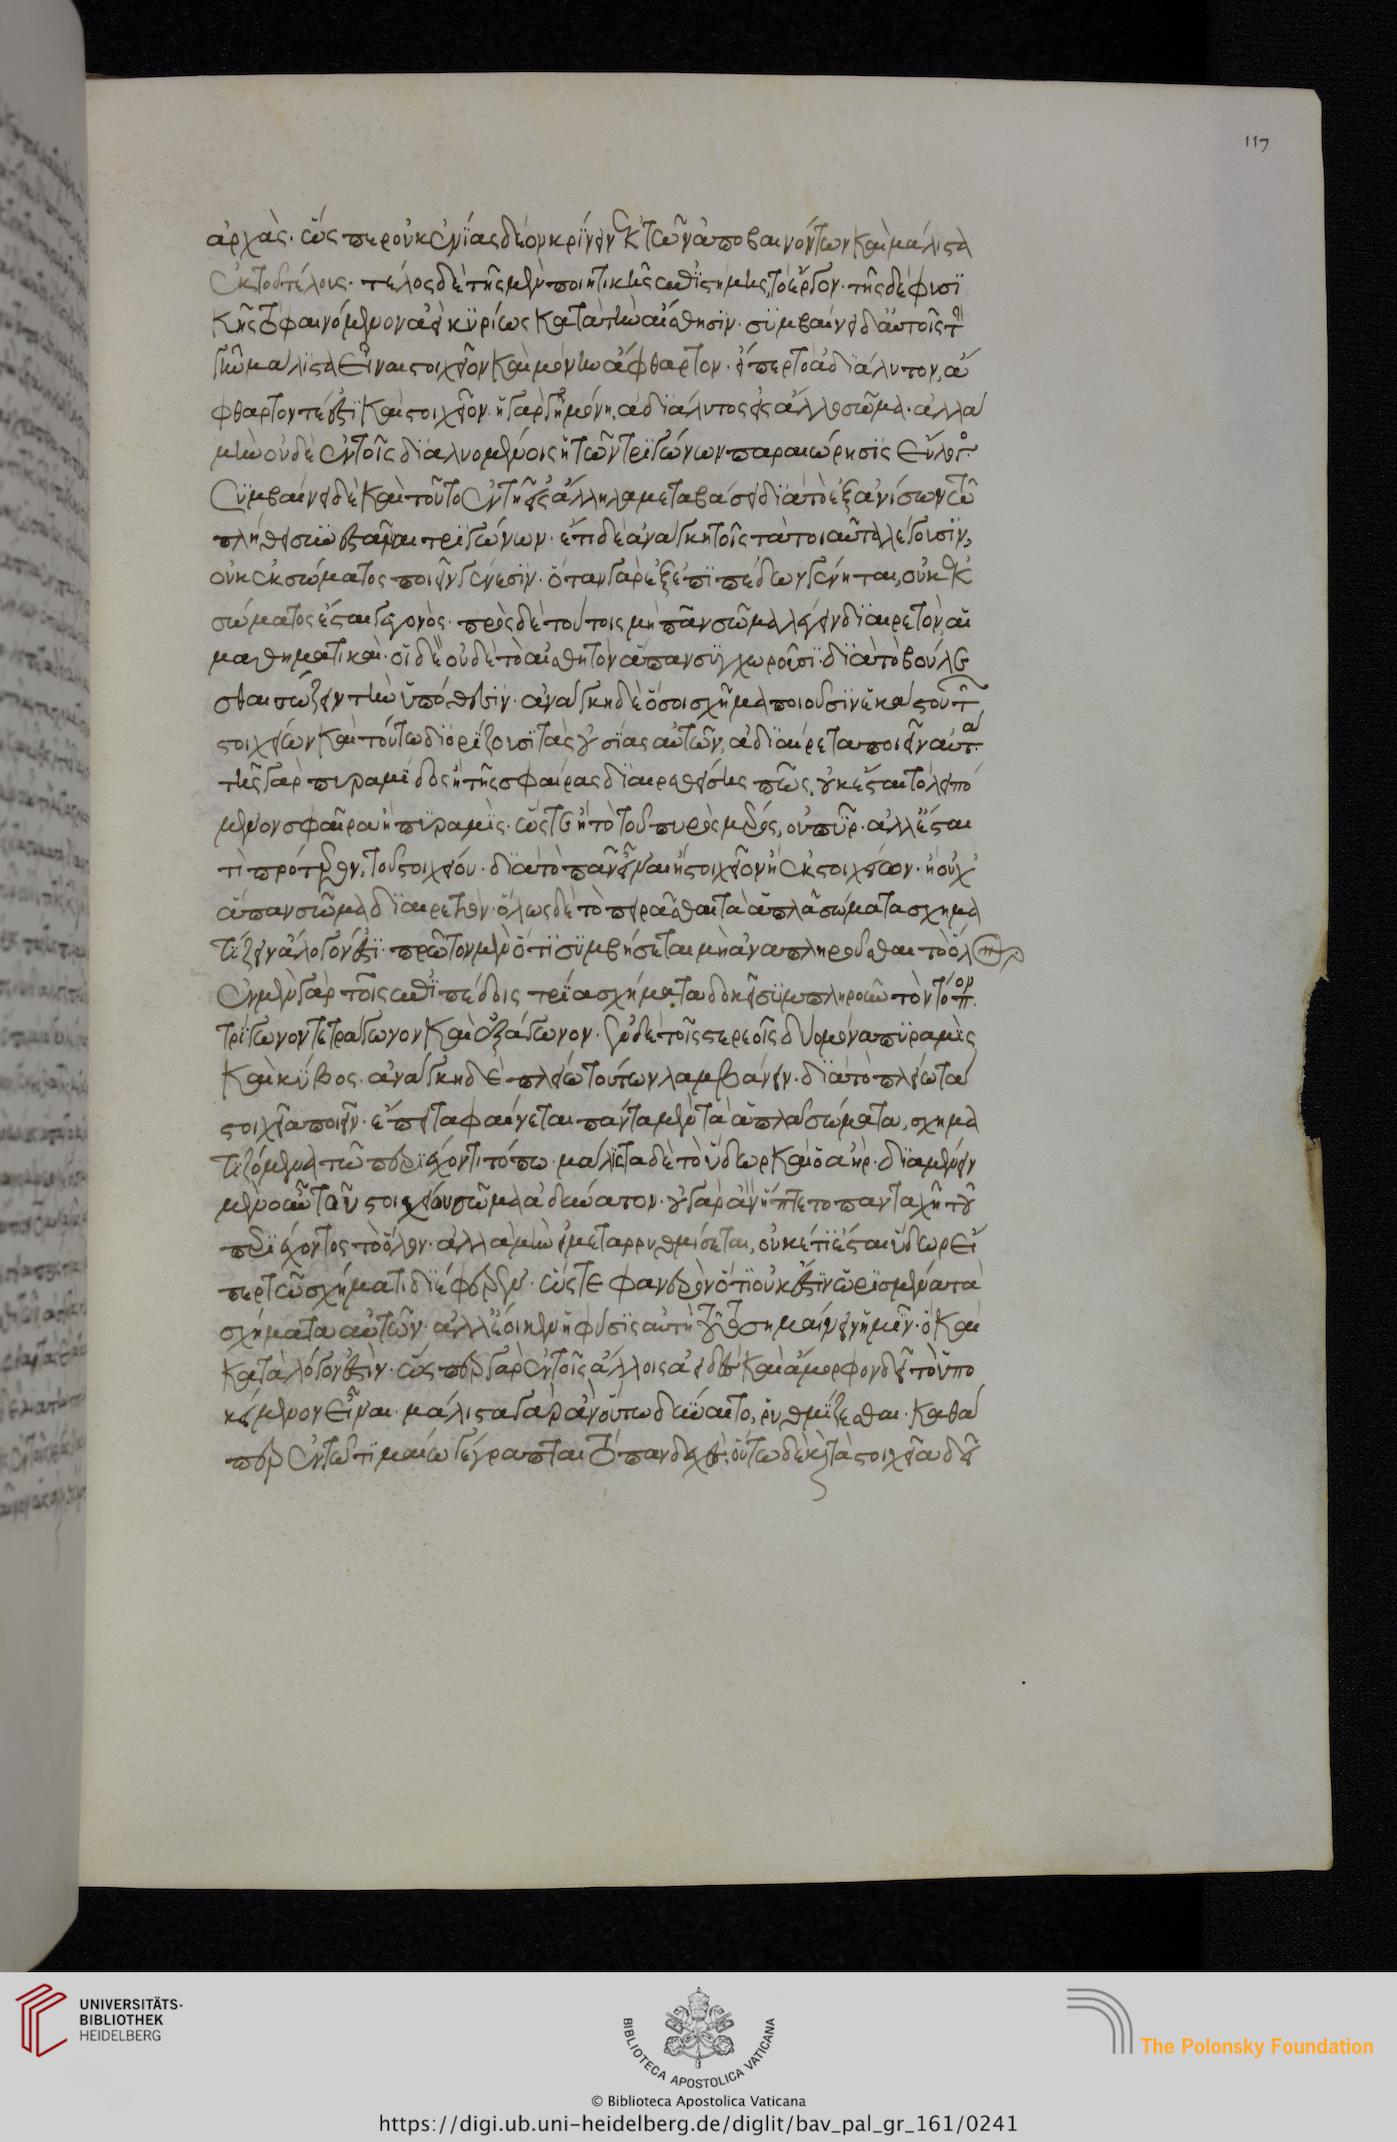 ἀρχὰς· ὥς περ οὐκ ἐνίας δέον κρίνειν ἐκ τῶν ἀποβαινόντων καὶ μάλιστα
ἐκ τοῦ τέλους· τέλος δὲ τῆς μὲν ποιητικῆς ἐπϊστήμης, τὸ ἔργον· τῆς δὲ φυσϊ
κῆς τὸ φαινόμενον ἀεὶ κϋρίως κατὰ τὴν αἴσθησϊν· σϋμβαίνει δ' αὐτοῖς τὴν
γῆν μάλϊστα εἶναι στοιχεῖον καὶ μόνην ἄφθαρτον· εἴπερ τὸ ἀδϊάλυτον, ἄ
φθαρτον τέ ἐστϊ καὶ στοιχεῖον· ἡ γὰρ γῆ μόνη, ἀδϊάλυτος εἰς ἄλλο σῶμα· ἀλλὰ
μὴν οὐδὲ ἐν τοῖς δϊαλυομένοις ἡ τῶν τρϊγώνων παραιώρησϊς εὔλογος·
Σϋμβαίνει δὲ καὶ τοῦτο ἐν τῇ εἰς ἄλληλα μεταβάσει δϊὰ τὸ ἐξ ἀνίσων τῶ
πλήθει συνεστᾶναι τρϊγώνων· ἔτι δὲ ἀνάγκη τοῖς τὰ τοιαῦτα λέγουσϊν,
οὐκ ἐκ σώματος ποιεῖν γένεσϊν· ὅταν γὰρ ἐξ ἐπϊπέδων γένηται, οὐκ ἐκ
σώματος ἔσται γεγονὸς· πρὸς δὲ τούτοις μὴ πᾶν σῶμα λέγειν δϊαιρετὸν, αἱ
μαθηματικαὶ· οἱ δὲ οὐδὲ τὸ αἰσθητὸν ἅπαν συγχωροῦσϊ· δϊὰ τὸ βούλε
σθαι σώζειν τὴν ὑπόθεσϊν· ἀνάγκη δὲ ὅσοι σχῆμα ποιοῦσϊν ἑκάστου τῶν
στοιχείων καὶ τούτω διορίζουσϊ τὰς οὐσίας αὐτῶν, ἀδϊαίρετα ποιεῖν αὐτά·
τῆς γὰρ πυραμίδος ἢ τῆς σφαίρας δϊαιρεθείσης πῶς, οὐκ ἔσται τὸ λειπό
μενον σφαῖρα ἢ πϋραμὶς· ὥστε ἢ τὸ τοῦ πυρὸς μέρος, οὐ πῦρ· ἀλλ' ἔσται
τὶ πρότερον, τοῦ στοιχείου· δϊὰ τὸ πᾶν εἶναι ἢ στοιχεῖον ἢ ἐκ στοιχείων· ἢ οὐχ
ἅπαν σῶμα δϊαιρετὸν· ὅλως δὲ τὸ πειρᾶσθαι τὰ ἁπλᾶ σώματα σχημα
τίζειν ἄλογόν ἐστϊ· πρῶτον μὲν ὅτϊ σϋμβήσεται μὴ ἀναπληροῦσθαι τὸ ὅλον
ἐν μὲν γὰρ τοῖς ἐπϊπέδοις τρία σχήματα δοκεῖ σϋμπληροῦν τὸν τόπον·
τρίγωνον τετράγωνον καὶ ἑξάγωνον· ἐν δὲ τοῖς στερεοῖς δύο μόνα πϋραμὶς
καὶ κύβος· ἀνάγκη δὲ πλείω τούτων λαμβάνειν· δϊὰ τὸ πλείω τὰ
στοιχεῖα ποιεῖν· ἔπειτα φαίνεται πάντα μὲν τὰ ἁπλᾶ σώματα, σχημα
τιζόμενα τῶ περιέχοντι τόπω· μάλϊστα δὲ τὸ ὕδωρ καὶ ὁ ἀὴρ· δϊαμένειν
μὲν οὖν τὸ τοῦ στοιχείου σῶμα ἀδύνατον· οὐ γὰρ ἂν ἥπτετο πανταχῆ τοῦ
περϊέχοντος τὸ ὅλον· ἀλλὰ μὴν εἰ μεταρρυθμίσεται, οὐκέτϊ ἔσται ὕδωρ εἴ
περ τῶ σχήματι δϊέφερεν· ὥστε φανερὸν ὅτϊ οὐκ ἔστϊν ὡρϊσμένα τὰ
σχήματα αὐτῶν· ἀλλ' ἔοικεν ἡ φύσϊς αὐτὴ τοῦτο σημαίνειν ἡμῖν· ὃ καὶ
κατὰ λόγον ἐστὶν· ὥς περ γὰρ ἐν τοῖς ἄλλοις ἀειδὲς καὶ ἄμορφον δεῖ τὸ ὑπο
κείμενον εἶναι· μάλιστα γὰρ ἂν οὕτω δύναιτο, ῥυθμίζεσθαι· καθά
περ ἐν τῶ τϊμαίω γέγραπται τὸ πανδεχὲς· οὕτω δὲ καὶ τὰ στοιχεῖα δεῖ
117
UNIVERSITÄTS-
BIBLIOTHEK
HEIDELBERG
BIBLIOTECA APOSTOLICA VATICANA
The Polonsky Foundation
© Biblioteca Apostolica Vaticana
https://digi.ub.uni-heidelberg.de/diglit/bav_pal_gr_161/0241